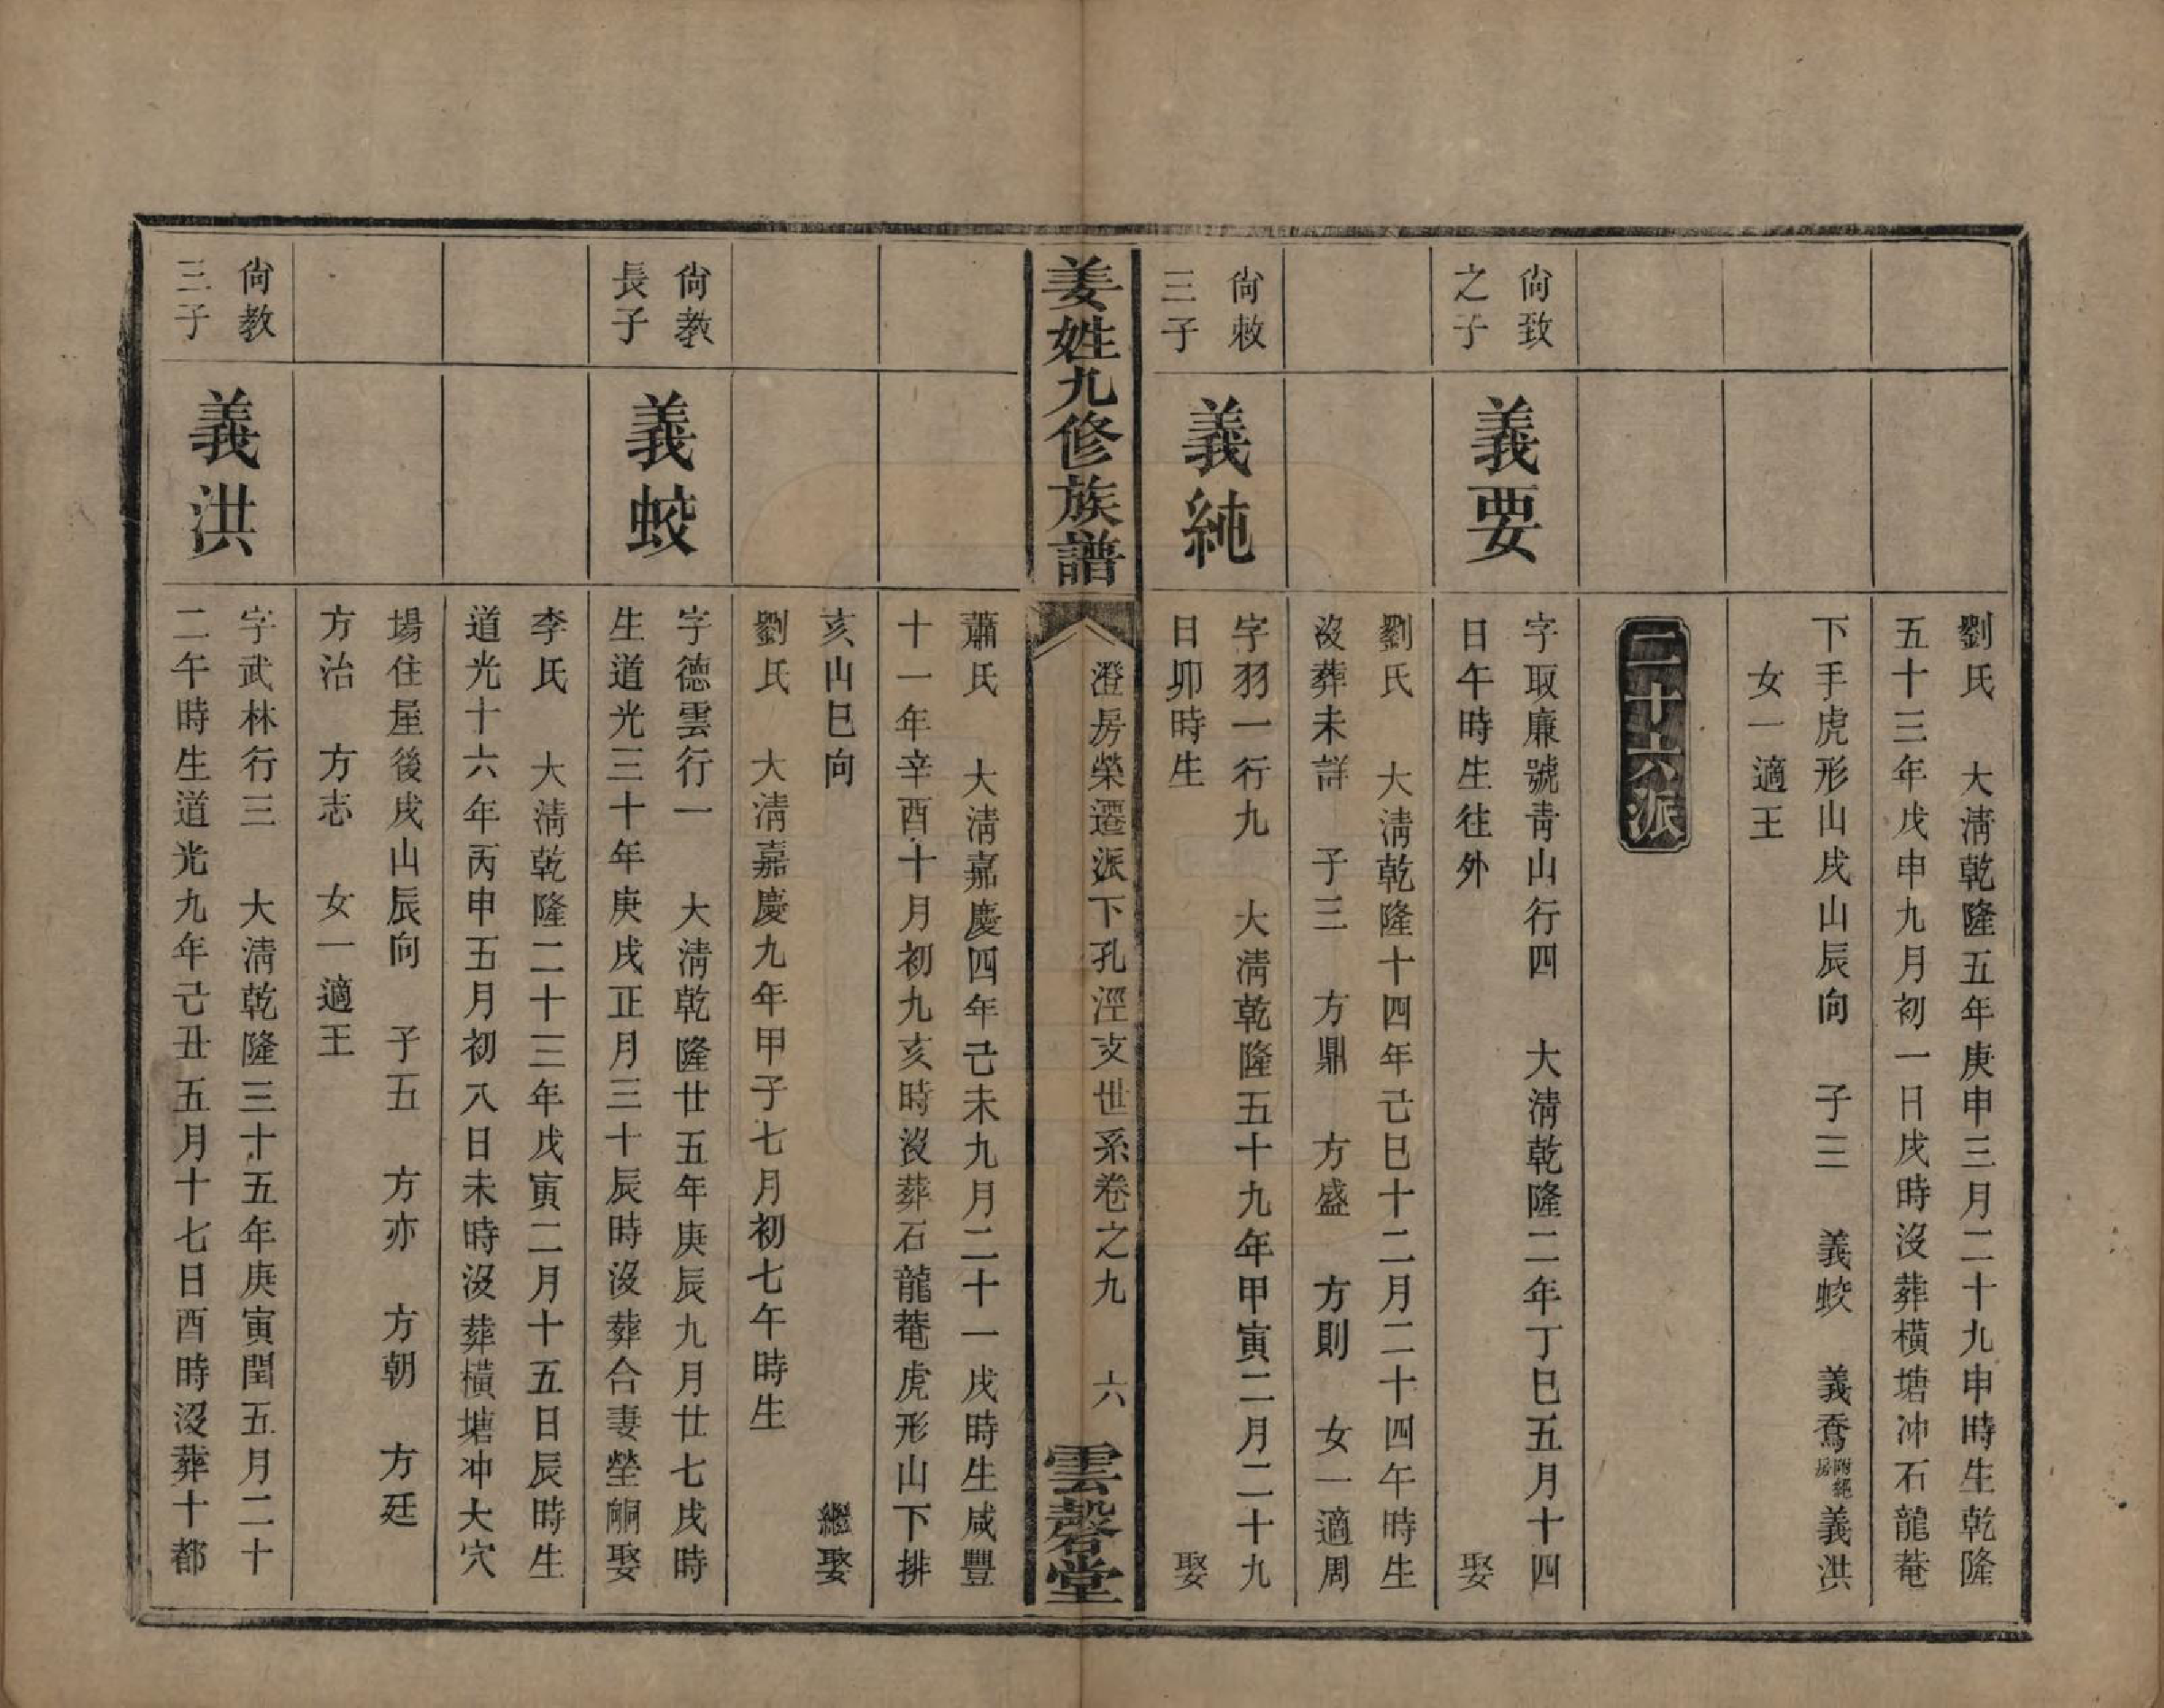 劉氏　大淸乾隆五年庚申三月二十九申時生乾隆
五十三年戊申九月初一日戌時沒葬橫塘冲石龍菴
下手虎形山戌山辰向　子三　義蛟　義喬附繩房義洪
女一適王
二十六派
尙致
之子
義要
字取廉號靑山行四　大淸乾隆二年丁巳五月十四
日午時生往外　娶
劉氏　大淸乾隆十四年己巳十二月二十四午時生
沒葬未詳　子三　方鼎　方盛　方則　女一適周
尙敕
三子
義純
字羽一行九　大淸乾隆五十九年甲寅二月二十九
日卯時生　娶
姜姓九修族譜
澄房榮遷派下孔涇支世系卷之九　六
雲磬堂
蕭氏　大淸嘉慶四年己未九月二十一戌時生咸豐
十一年辛酉十月初九亥時沒葬石龍菴虎形山下排
亥山巳向　繼娶
劉氏　大淸嘉慶九年甲子七月初七午時生
尙教
長子
義蛟
字德雲行一　大淸乾隆廿五年庚辰九月廿七戌時
生道光三十年庚戌正月三十辰時沒葬合妻塋峒娶
李氏　大淸乾隆二十三年戊寅二月十五日辰時生
道光十六年丙申五月初八日未時沒葬橫塘冲大穴
場住屋後戌山辰向　子五　方亦　方朝　方廷
方治　方志　女一適王
尙教
三子
義洪
字武林行三　大淸乾隆三十五年庚寅閏五月二十
二午時生道光九年己丑五月十七日酉時沒葬十都